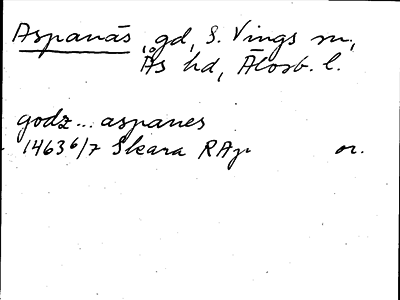 Aspanäs, gd, S. Vings sn,
Ås hd, Älvsb. l.
godz... aspanes
1463 6/7 Skara RAp or.